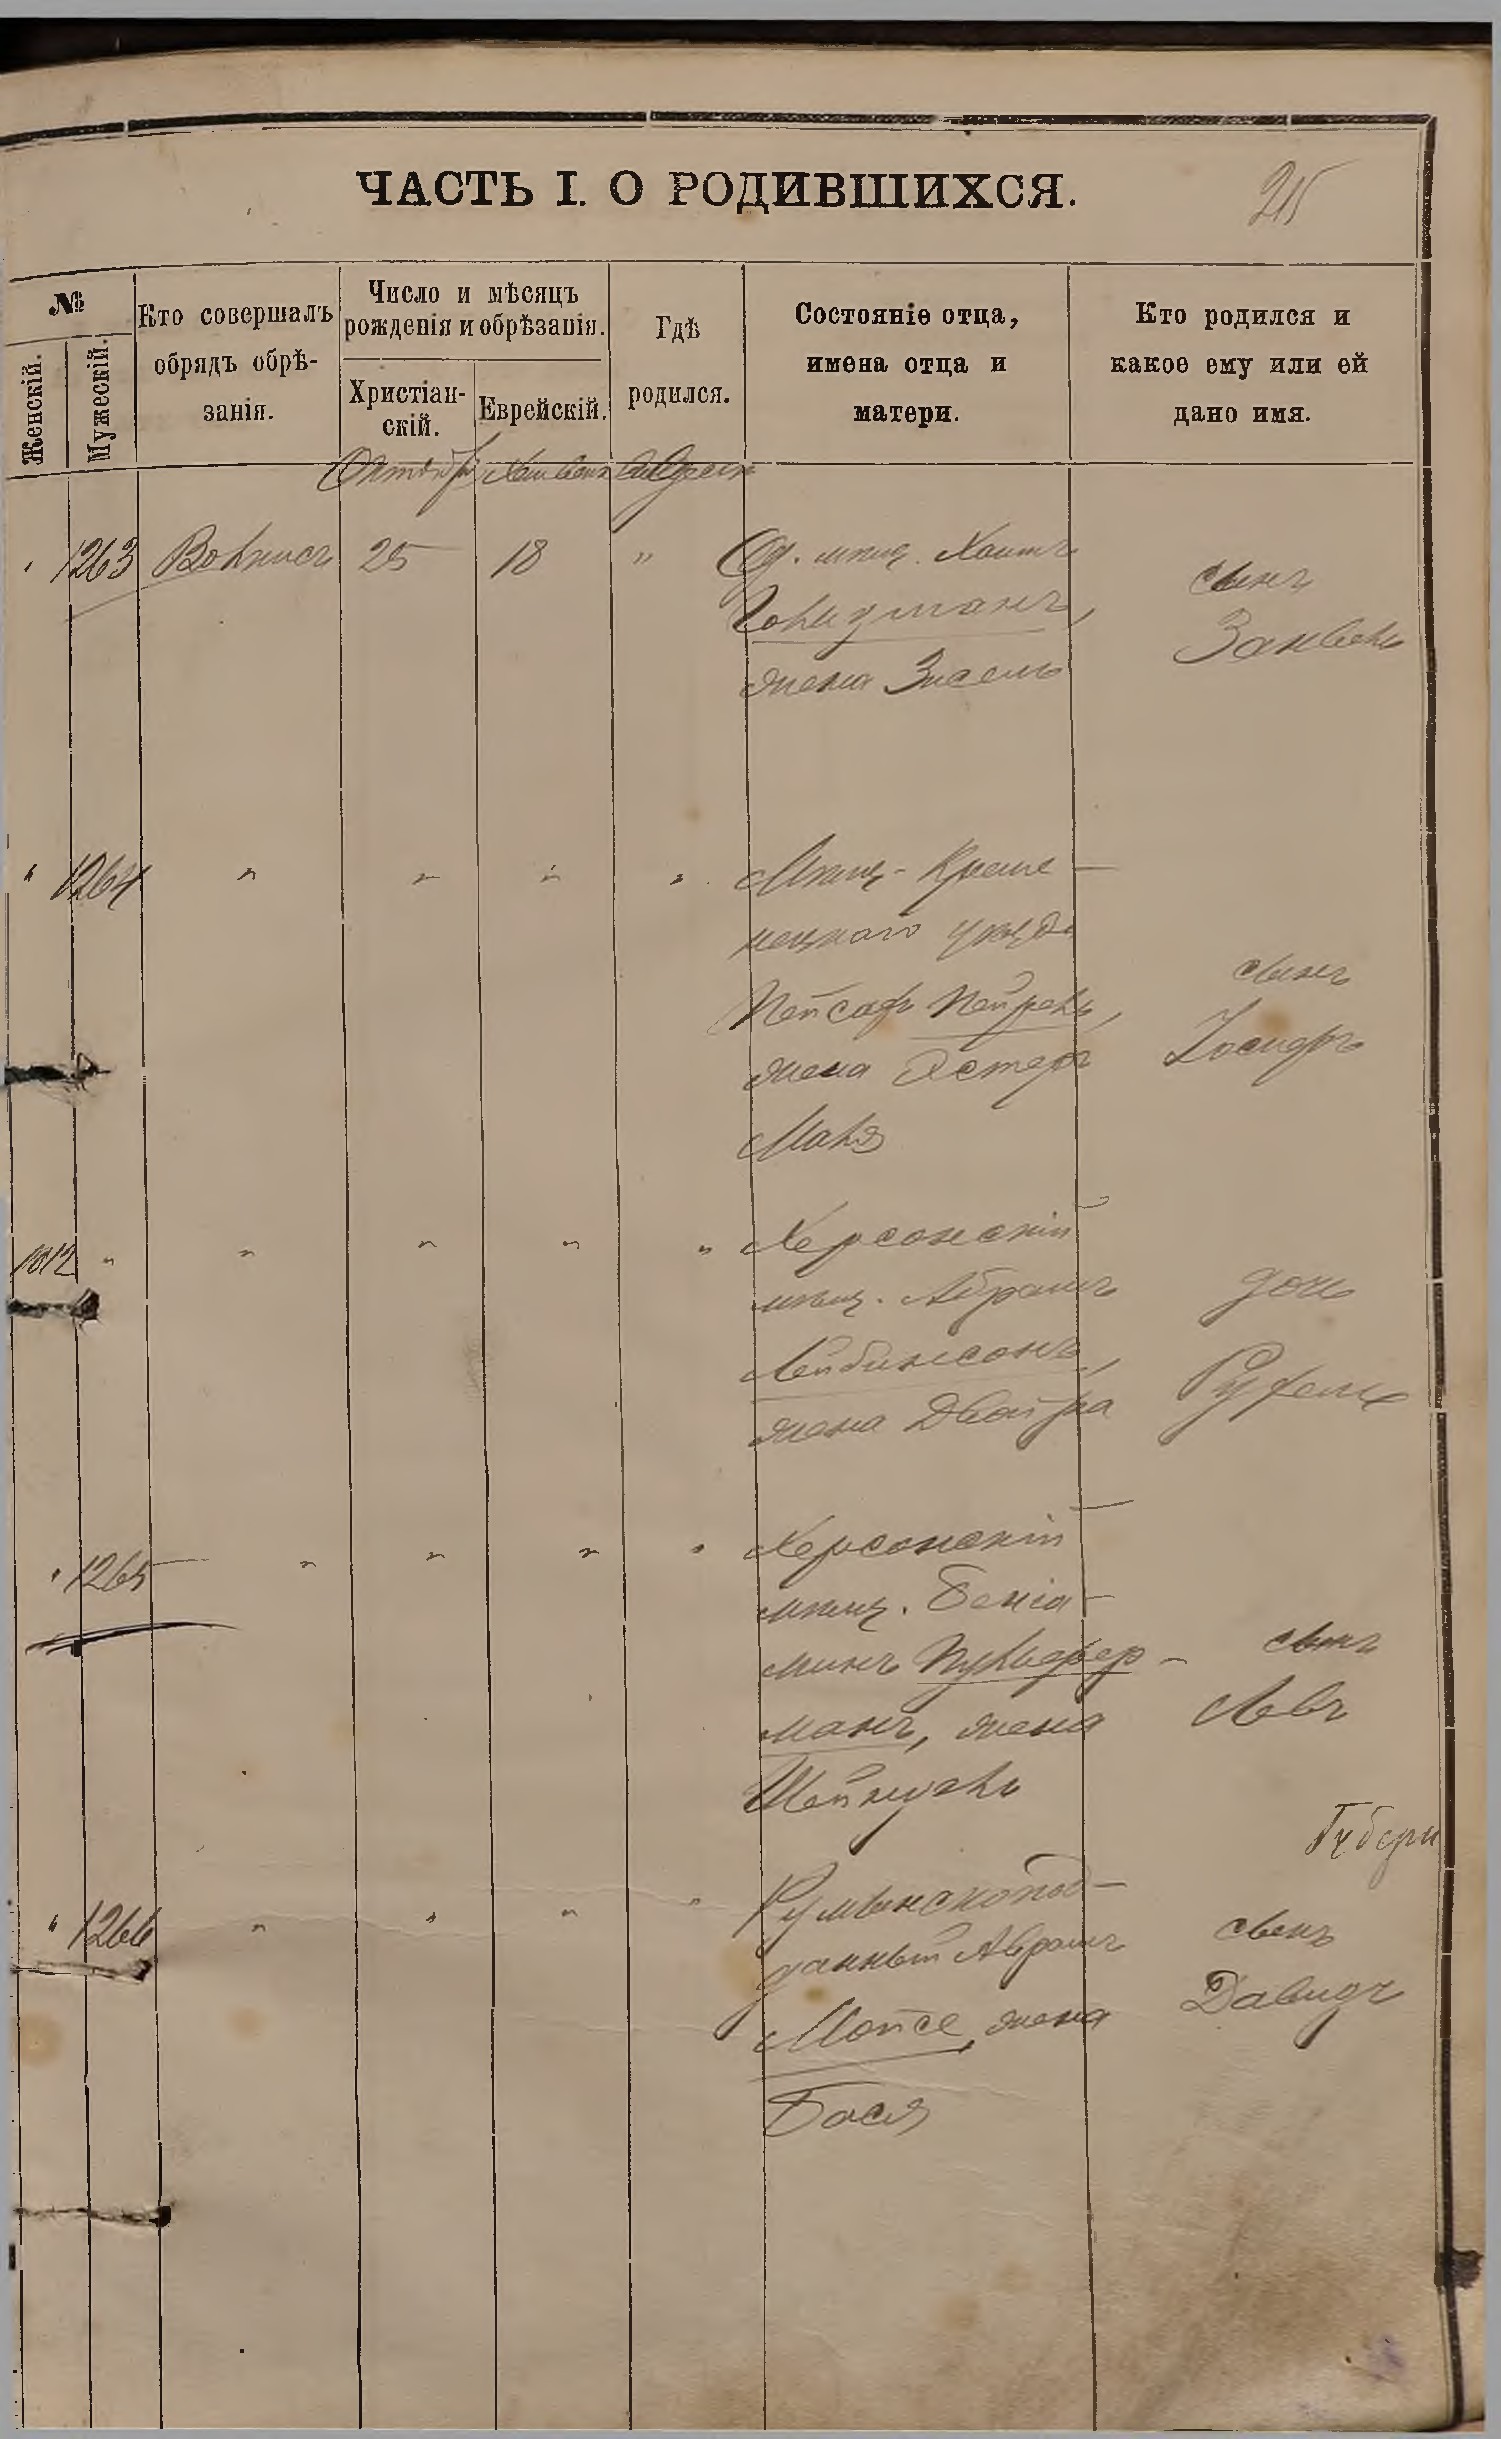 ЧАСТЬ I. О РОДИВШИХСЯ.
215
№
Женскій.
Мужескій.
Кто совершалъ
обрядъ обрѣ-
занія.
Число и мѣсяцъ
рожденія и обрѣзанія.
Христіан-
скій.
Еврейскій.
Гдѣ
родился.
Состояніе отца,
имена отца и
матери.
Кто родился и
какое ему или ей
дано имя.
Октябрь Хешванъ Одесса
" 1263 25 18 " Од. мѣщ. Хаимъ
Гольдманъ,
жена Зисель
сынъ
Занвель
" 1264 " " " " Мѣщ. Креме-
нецкаго уѣзда
Пейсафъ
жена Эстеръ
Маля
сынъ
Іосифъ
1012 " " " " " Херсонскій
мѣщ. Абрамъ
Лейбинсонъ,
жена Двойра
дочь
Руфель
" 1265 " " " " Херсонскій
мѣщ. Беніа-
минъ Пульфер-
манъ, жена
сынъ
Левъ
Губерн
" 1266 " " " " Румынскопод-
данный Абрамъ
Мойсе, жена
Бася
сынъ
Давидъ